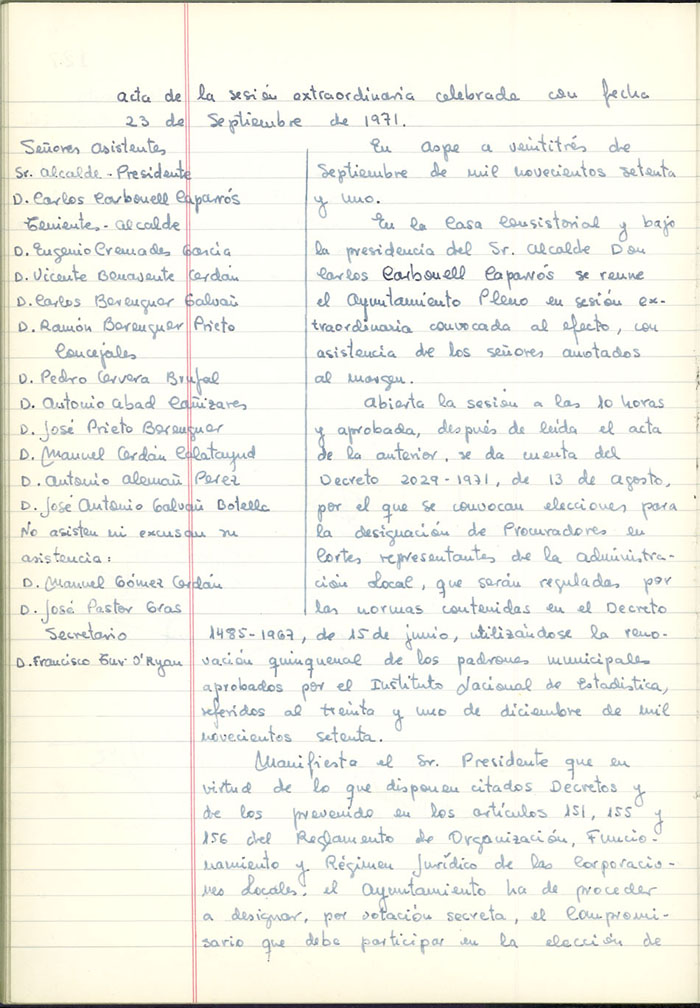 acta de la sesión extraordinaria celebrada con fecha
23 de Septiembre de 1971.
Señores asistentes
Sr. Alcalde-Presidente
D. Carlos Carbonell Caparrós
Tenientes-alcalde
D. Eugenio Cremades García
D. Vicente Benavente Cerdán
D. Carlos Berenguer Galvañ
D. Ramón Berenguer Prieto
Concejales
D. Pedro Cervera Brufal
D. Antonio Abad Cañizares
D. José Prieto Berenguer
D. Manuel Cerdán Calatayud
D. Antonio Alemañ Perez
D. José Antonio Galvañ Botella
No asisten ni excusan su
asistencia:
D. Manuel Gómez Cerdán
D. José Pastor Gras
Secretario
D. Francisco O'Ryan
En Aspe a veintitrés de
Septiembre de mil novecientos setenta
y uno.
En la Casa Consistorial y bajo
la presidencia del Sr. Alcalde Don
Carlos Carbonell Caparrós se reune
el Ayuntamiento Pleno en sesión ex-
traordinaria convocada al efecto, con
asistencia de los señores anotados
al margen.
Abierta la sesión a las 10 horas
y aprobada, después de leída el acta
de la anterior, se da cuenta del
Decreto 2029-1971, de 13 de agosto,
por el que se convocan elecciones para
la designación de Procuradores en
Cortes representantes de la administra-
ción Local, que serán reguladas por
las normas contenidas en el Decreto
1485-1967, de 15 de junio, utilizándose la reno-
vación quinquenal de los padrones municipales
aprobados por el Instituto Nacional de Estadística,
referidos al treinta y uno de diciembre de mil
novecientos setenta.
Manifiesta el Sr. Presidente que en
virtud de lo que disponen citados Decretos y
de los prevenido en los artículos 151, 155 y
156 del Reglamento de Organización, Funcio-
namiento y Régimen Jurídico de las Corporacio-
nes Locales, el Ayuntamiento ha de proceder
a designar, por votación secreta, el Compromi-
sario que debe participar en la elección de